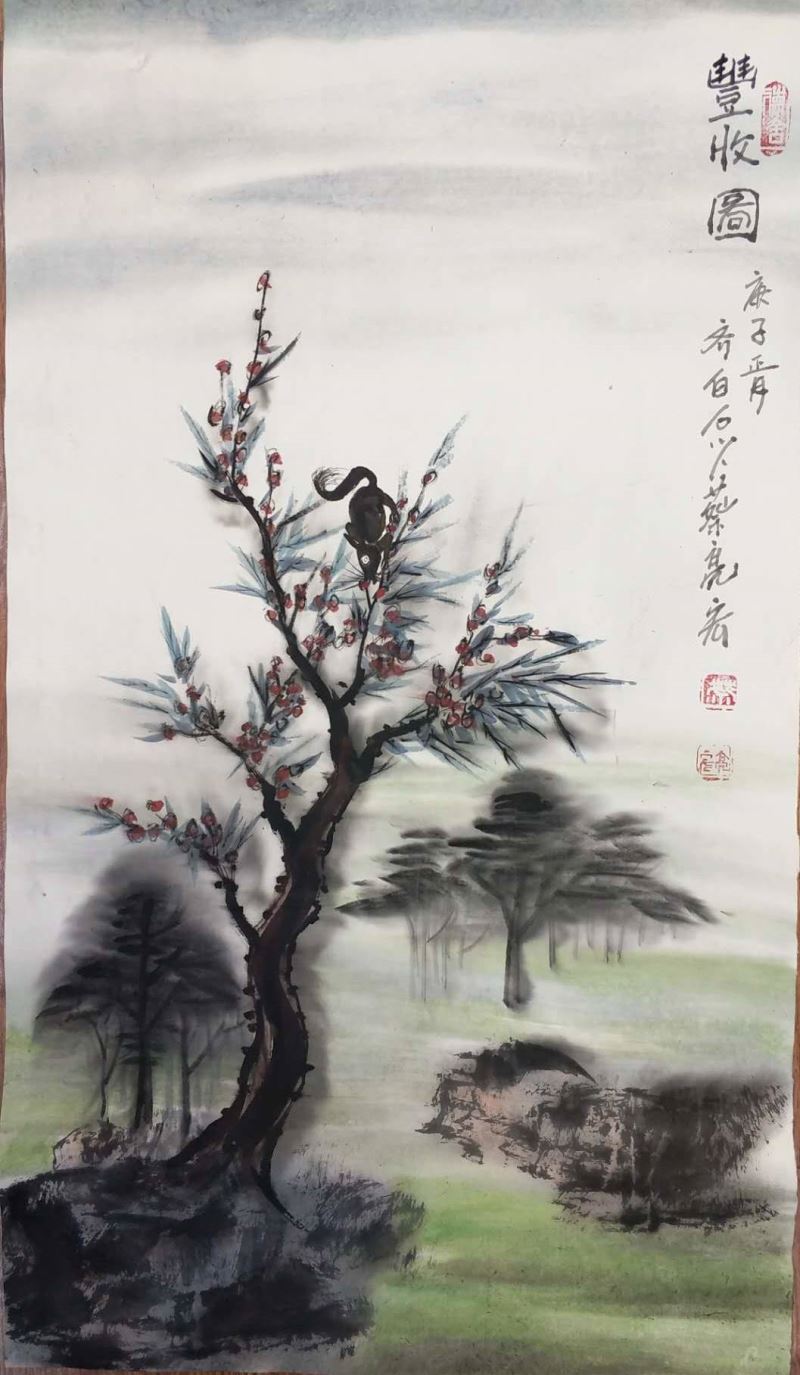 豐收圖
庚子正月
齐白石 蔡亮宏